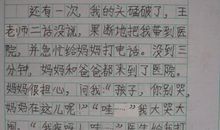 还有一次，我的头磕破了，王
老师二话没说，果断地把我带到医
院，并急忙给妈妈打电话。没到三
分钟，妈妈和爸爸都来到了医院。
妈妈很担心，问我“孩子，你别哭，
妈妈在这儿呢！”“哇……”我大哭大